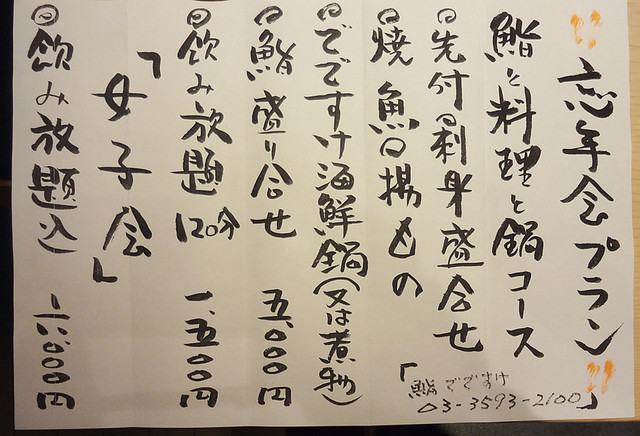 "忘年会プラン"
鮨と料理と鍋コース
◎先付◎刺身盛合せ
◎焼魚◎揚もの
◎でですけ海鮮鍋(又は煮物)
◎鮨盛り合せ 五、〇〇〇円
◎飲み放題 120分 一、五〇〇円
「女子会」
◎飲み放題込 六、〇〇〇円
「鮨でですけ
03-3593-2100」